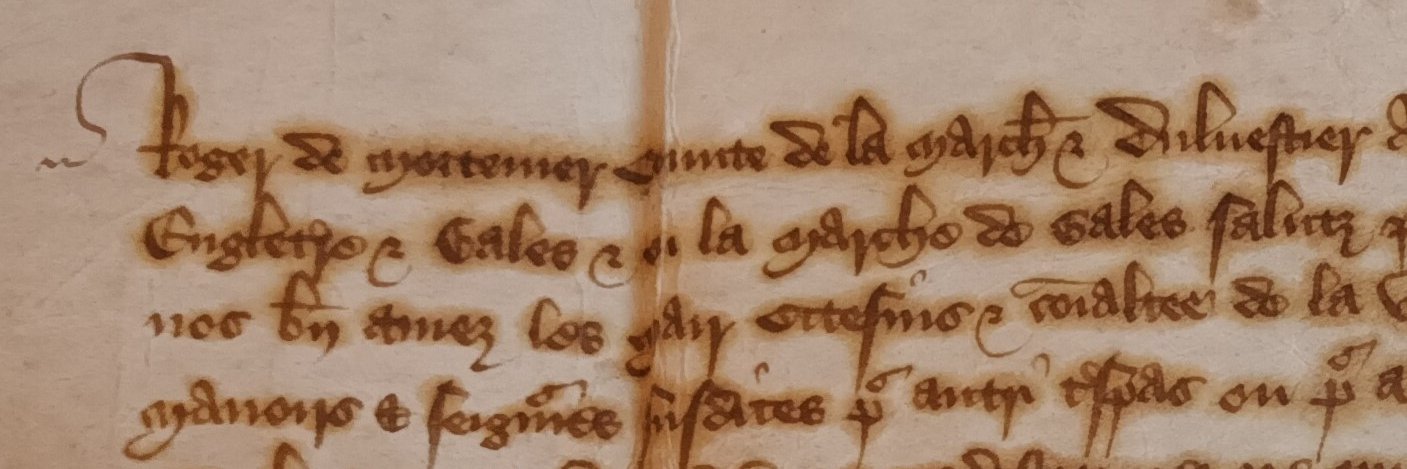 Roger de mortemer Counte de la march̄ & Duluestier
Engletre & Gales & en la marche de Gales salutz
nos bn̄ amez les mair Citesins & cōialtee de la
manoirs & seignries susdites p autri tspas ou p